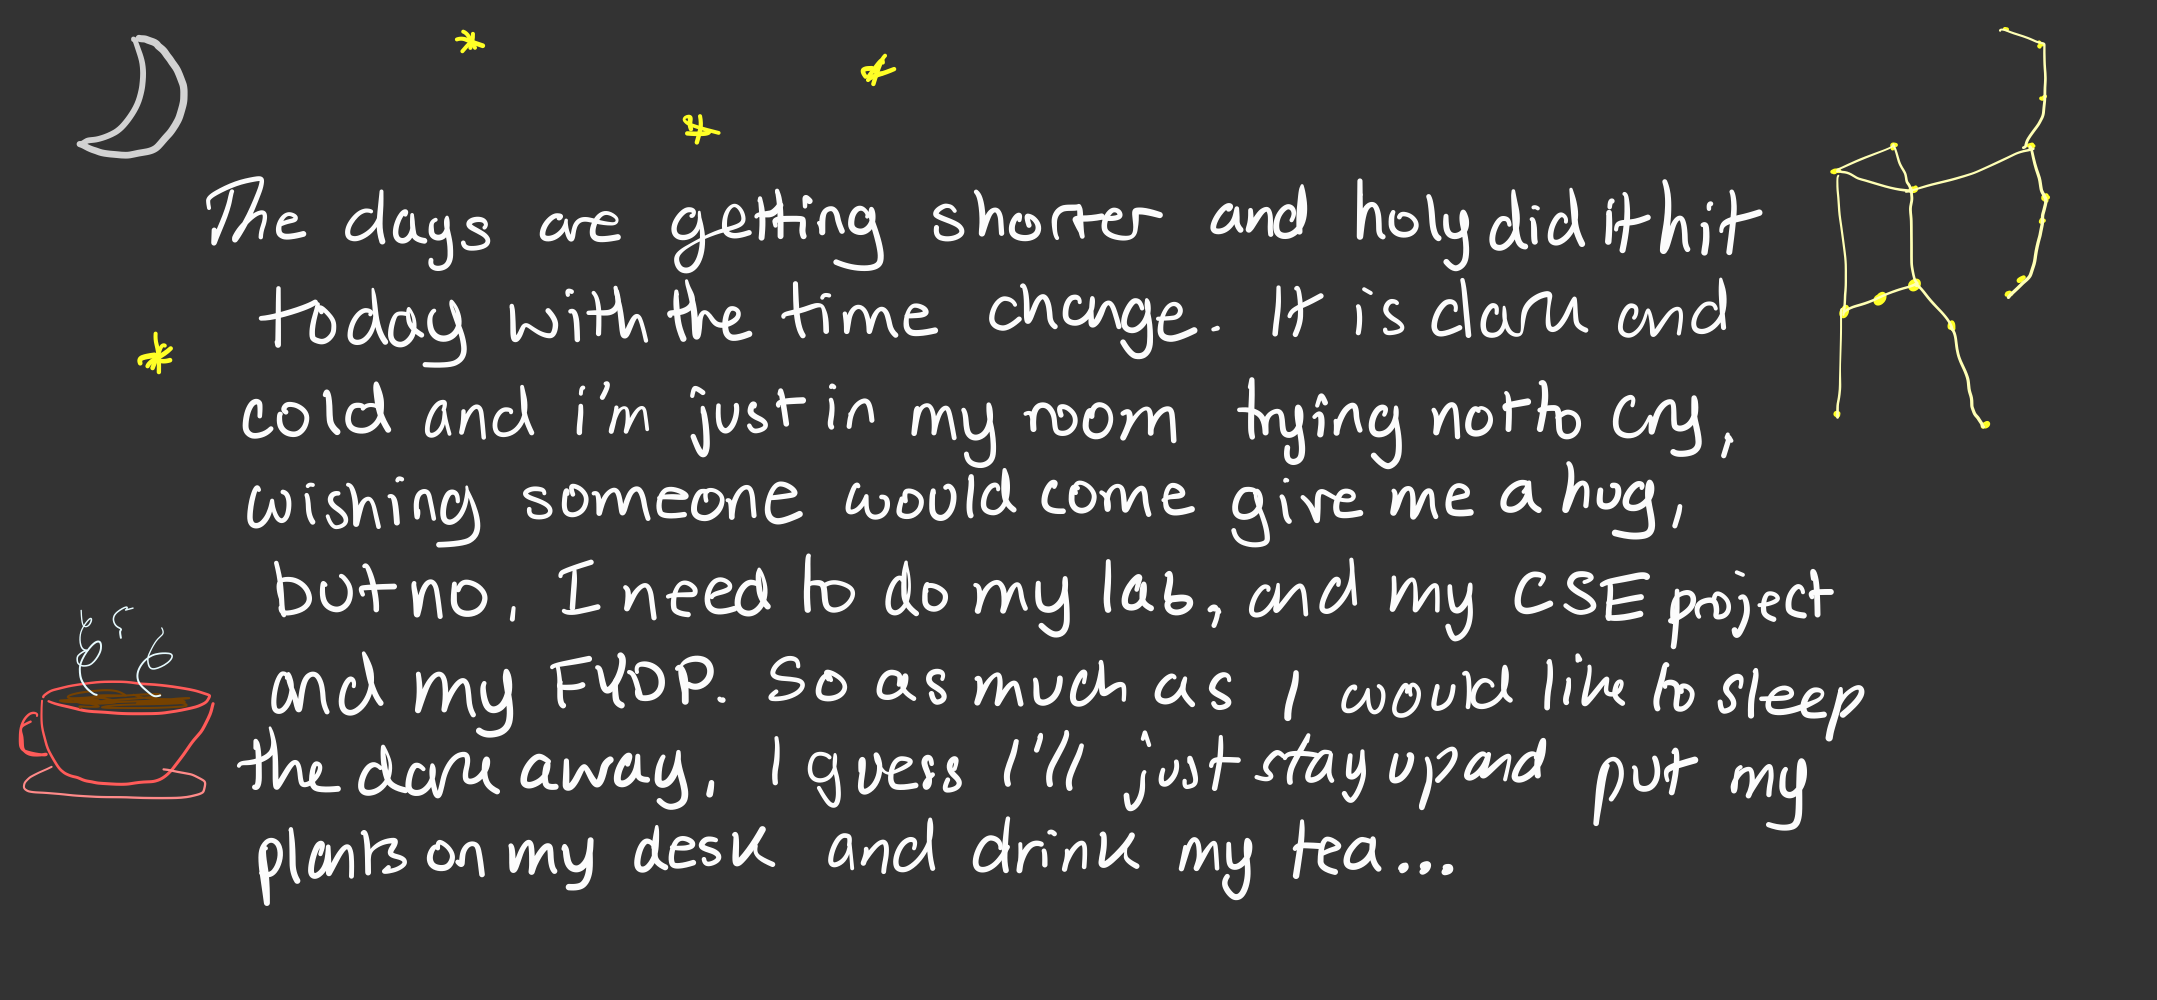 The days are getting shorter and holy did it hit
today with the time change. It is dark and
cold and i'm just in my room trying not to cry,
wishing someone would come give me a hug,
but no, I need to do my lab, and my CSE project
and my FYDP. So as much as I would like to sleep
the dark away, I guess I'll just stay up and put my
plants on my desk and drink my tea...